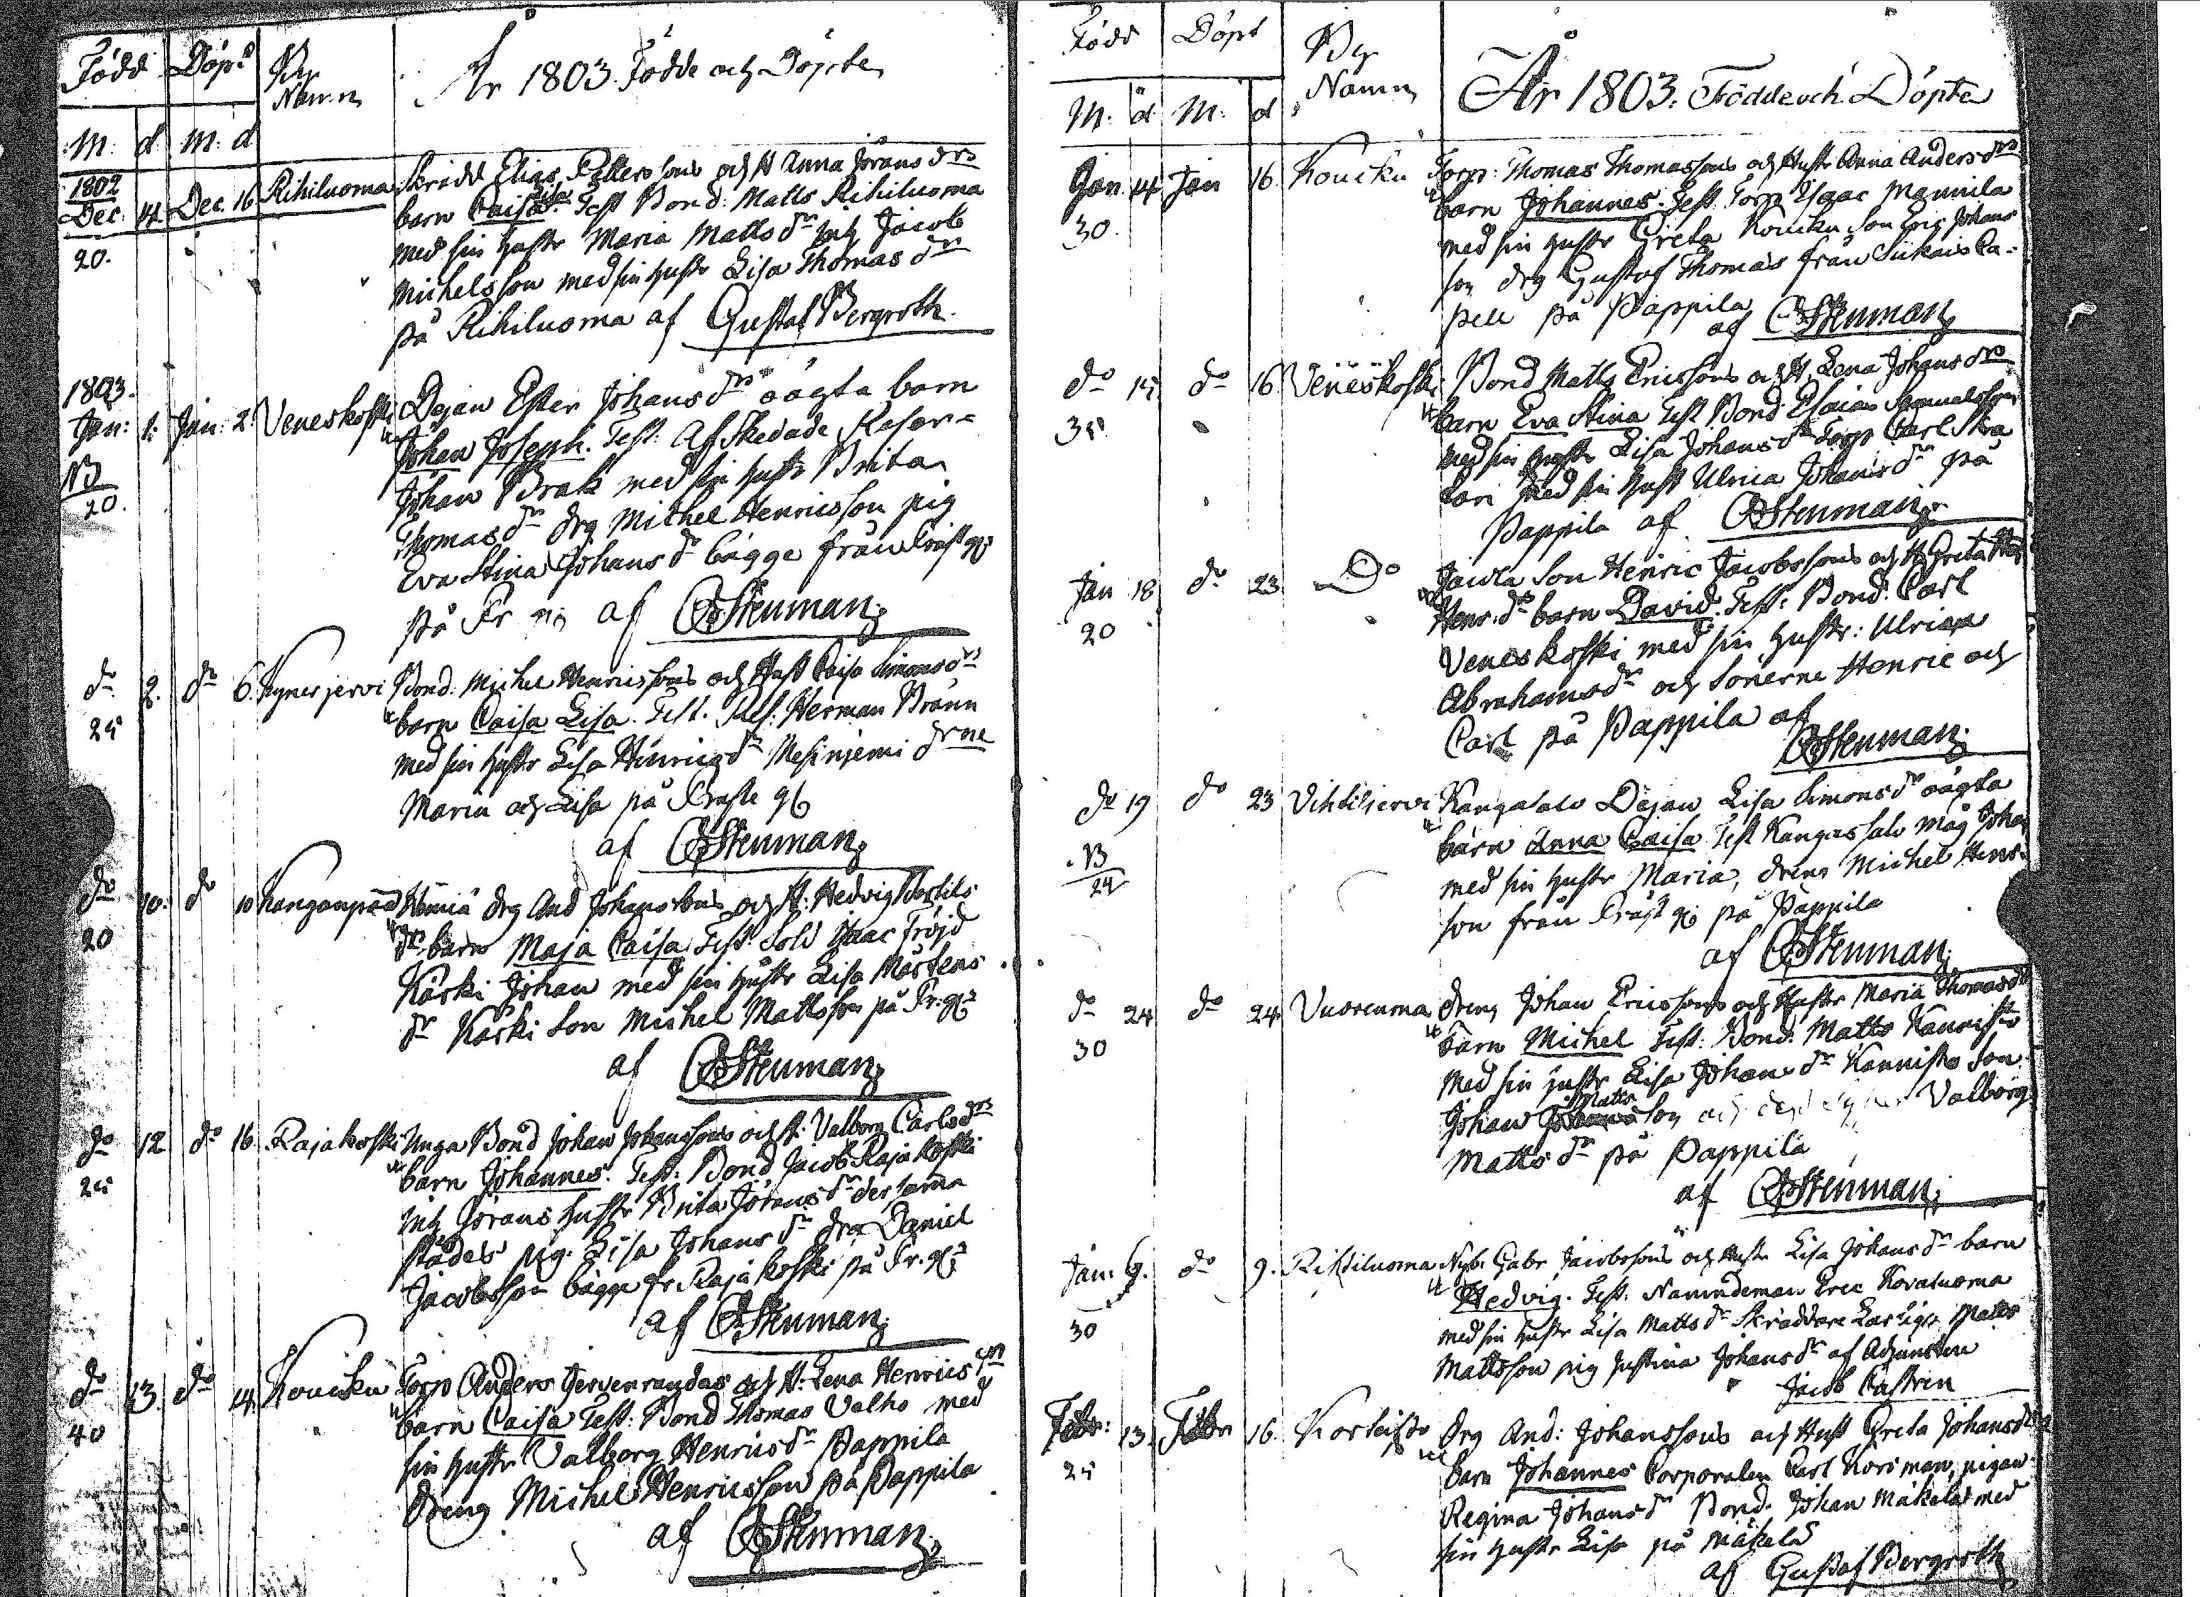 Född Döpt By Namn År 1803 Födde och Döpte
M: d M: d
1802 Dec. 14 Dec. 16 Rihiluoma Skrädd Elias Petterssons och H Anna Jörans drs
20. barn Caisa Lisa. Test Bond. Matts Rihiluoma
med sin hustr Maria Matts dr Inh Jacob
Michelsson med sin hustr Lisa Thomas dr
på Rihiluoma af Gustaf Bergroth
1803.
Jan: 1. Jan: 2. Veneskoski Dejan Ester Johans drs oägta barn
NB Johan Joseph. Test: Afskedade
20. Johan Brak med sin hustr Brita
Thomas dr drg Michel Henricsson pig
Eva Stina Johans dr bägge från
på Pr af CGStenman
do 2. do 6. Kynesjervi Bond. Michel Henricssons och Hust Caisa Simons drs
25 barn Caisa Lisa. Test. Herman Brunn
med sin hustr Lisa Hinrics dr drne
Maria och Lisa på
af CGStenman
do 10. do 10 Kanganpää drg And Johanssons och H: Hedvig Bertils
20 drs barn Maja Caisa Test. Sold Isaac Fröjd
Koski Johan med sin hustr Lisa Mårtens
dr Koski Son Michel Mattsson på Pr. g:
af CGStenman
do 12 do 16 Rajakoski Unga Bond Johan Johanssons och H. Valborg Carls drs
25 barn Johannes. Test: Bond Jacob Rajakoski
Inh Jörans hustr Brita Jörans dr der samma
städes pig. Lisa Johans dr drg Daniel
Jacobsson bägge fr Rajakoski på Pr. g:
af CGStenman
do 13. do 14. Koucku Torp Anders och H: Lena Henrics drs
40 barn Caisa Test: Bond Thomas Valho med
sin hustr Valborg Henrics dr Pappila
Dreng Michel Henricsson på Pappila
af CGStenman
Född Döpt By Namn År 1803. Födde och Döpte
M. d M: d
Jan 14 Jan 16. Koucku Torp: Thomas Thomassons och Hustr Anna Anders drs
30. barn Johannes. Test. Torp Isaac Mannila
med sin hustr Greta Koucku Son Eric Johans
son drg Gustaf Thomas från Siikais Ca-
pell på Pappila
af CGStenman
do 15 do 16. Veneskoski Bond Matts Ericssons och H. Lena Johans drs
35. barn Eva Stina Test. Bond Esaias Samuelsson
med sin hustr Lisa Johans dr Torp Carl
med sin hust Ulrica Johans dr på
Pappila af CGStenman
Jan 18 do 23 Do Son Henric Jacobssons och H. Greta
20 Henr. drs barn David. Test: Bond. Carl
Veneskoski med sin hustr: Ulrica
Abrahams dr och Sönerne Henric och
Carl på Pappila af
CGStenman
do 19 do 23 Vihtiljervi Kangasalo Dejan Lisa Simons dr oägta
NB barn Anna Caisa Test Kangassalo måg Johan
24 med sin hustr Maria, dreng Michel Henr-
son från på Pappila
af CGStenman
do 24 do 24. Vuorenma dreng Johan Ericssons och Hustr Maria Thomas drs
30 barn Michel Test: Bond. Matts Kannisto
med sin hustr Lisa Johans dr Kannisto Son
Johan Matts son och Valborg
Matts dr på Pappila
af CGStenman
Jan: 9. do 9. Rihiluoma Nyb. Gabr. Jacobssons och Hustr Lisa Johans dr barn
30 Hedvig. Test. Nämndeman Eric Kovaluoma
med sin hustr Lisa Matts dr Skräddare Matts
Mattsson pig Justina Johans dr af Adjuncten
Jacob Castren
Febr: 13. Febr 16. Drg And: Johanssons och Hust Greta Johans drs
25 barn Johannes Corporalen Carl Norsman, pigan
Regina Johans dr Bond. Johan Mäkelä med
sin hustr Lisa på Mäkelä
af Gustaf Bergroth